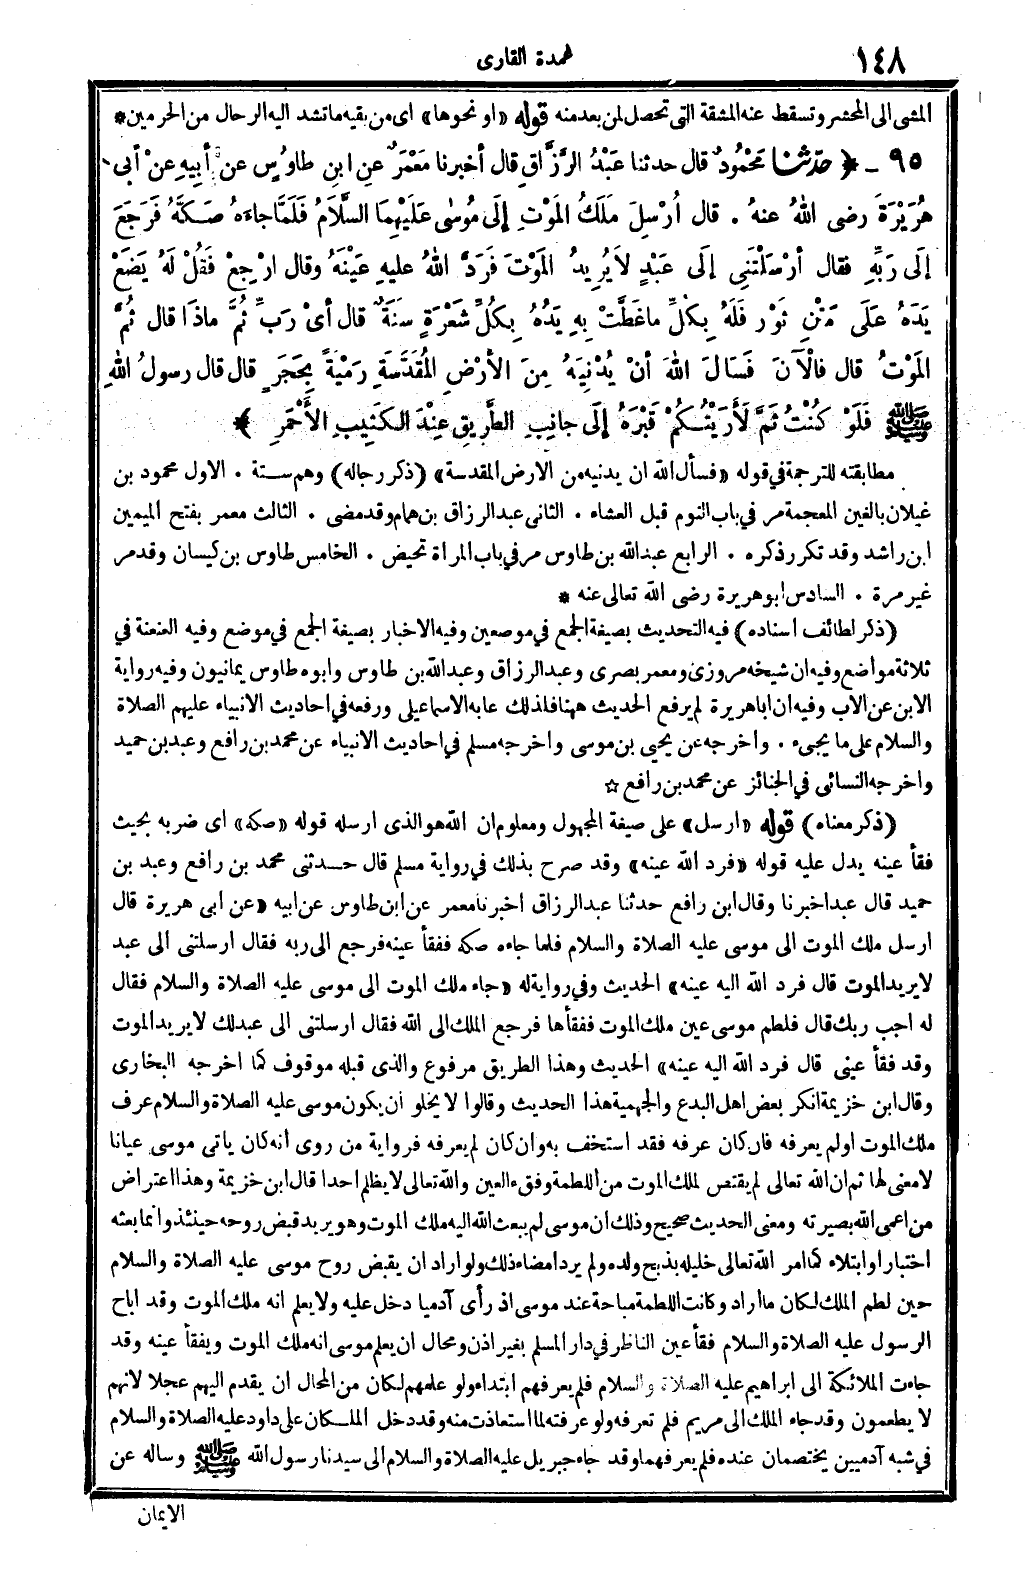 ١٤٨
عمدة القارى
المشى الى المحشر وتسقط عنه المشقة التى تحصل لمن بعد منه قوله «او نحوها» اى من بقيه ما تشد اليه الرحال من الحرمين *
٩٥ - ﴿ حدثنا مَحْمُودٌ قال حدثنا عَبْدُ الرَّزَّاقِ قال أخبرنا مَعْمَرٌ عنِ ابنِ طاوُسٍ عن أبِيهِ عنْ أبى
هُرَيْرَةَ رضى اللهُ عنهُ . قال أُرْسِلَ مَلَكُ المَوْتِ إلَى مُوسٰى عَلَيْهِمَا السَّلَامُ فَلَمَّا جاءَهُ صَكَّهُ فَرَجَعَ
إلَى رَبِّهِ فقال أرْسَلْتَنِى إلَى عَبْدٍ لَا يُرِيدُ المَوْتَ فَرَدَّ اللهُ عليهِ عَيْنَهُ وقال ارْجِعْ فَقُلْ لَهُ يَضَعُ
يَدَهُ عَلَى مَتْنِ ثَوْرٍ فَلَهُ بِكُلِّ ما غَطَّتْ بِهِ يَدُهُ بِكُلِّ شَعْرَةٍ سَنَةٌ قال أىْ رَبِّ ثُمَّ ماذَا قال ثُمَّ
المَوْتُ قال فالْآنَ فَسَالَ اللهَ أنْ يُدْنِيَهُ مِنَ الأرْضِ المُقَدَّسَةِ رَمْيَةً بِحَجَرٍ قال قال رسولُ اللهِ
ﷺ فَلَوْ كُنْتُ ثَمَّ لَأَرَيْتُكُمْ قَبْرَهُ إلَى جانِبِ الطَّرِيقِ عِنْدَ الكَثِيبِ الأَحْمَرِ ﴾
مطابقته للترجمة فى قوله «فسأل الله ان يدنيه من الارض المقدسة» (ذكر رجاله) وهم ستة . الاول محمود بن
غيلان بالغين المعجمة مر فى باب النوم قبل العشاء . الثانى عبد الرزاق بن همام وقد مضى . الثالث معمر بفتح الميمين
ابن راشد وقد تكرر ذكره . الرابع عبد الله بن طاوس مر فى باب المراة تحيض . الخامس طاوس بن كيسان وقد مر
غير مرة . السادس ابو هريرة رضى الله تعالى عنه *
(ذكر لطائف اسناده) فيه التحديث بصيغة الجمع فى موضعين وفيه الاخبار بصيغة الجمع فى موضع وفيه العنعنة فى
ثلاثة مواضع وفيه ان شيخه مروزى ومعمر بصرى وعبد الرزاق وعبد الله بن طاوس وابوه طاوس يمانيون وفيه رواية
الابن عن الاب وفيه ان ابا هريرة لم يرفع الحديث ههنا فلذلك عابه الاسماعيلى ورفعه فى احاديث الانبياء عليهم الصلاة
والسلام على ما يجىء . واخرجه عن يحيى بن موسى واخرجه مسلم فى احاديث الانبياء عن محمد بن رافع وعبد بن حميد
واخرجه النسائى فى الجنائز عن محمد بن رافع ☆
(ذكر معناه) قوله «ارسل» على صيغة المجهول ومعلوم ان الله هو الذى ارسله قوله «صكه» اى ضربه بحيث
فقأ عينه يدل عليه قوله «فرد الله عينه» وقد صرح بذلك فى رواية مسلم قال حدثنى محمد بن رافع وعبد بن
حميد قال عبد اخبرنا وقال ابن رافع حدثنا عبد الرزاق اخبرنا معمر عن ابن طاوس عن ابيه «عن ابى هريرة قال
ارسل ملك الموت الى موسى عليه الصلاة والسلام فلما جاءه صكه ففقأ عينه فرجع الى ربه فقال ارسلتنى الى عبد
لا يريد الموت قال فرد الله اليه عينه» الحديث وفى رواية له «جاء ملك الموت الى موسى عليه الصلاة والسلام فقال
له اجب ربك قال فلطم موسى عين ملك الموت ففقأها فرجع الملك الى الله فقال ارسلتنى الى عبد لك لا يريد الموت
وقد فقأ عينى قال فرد الله اليه عينه» الحديث وهذا الطريق مرفوع والذى قبله موقوف كما اخرجه البخارى
وقال ابن خزيمة انكر بعض اهل البدع والجهمية هذا الحديث وقالوا لا يخلو ان يكون موسى عليه الصلاة والسلام عرف
ملك الموت او لم يعرفه فان كان عرفه فقد استخف به وان كان لم يعرفه فرواية من روى انه كان ياتى موسى عيانا
لا معنى لها ثم ان الله تعالى لم يقتص لملك الموت من اللطمة وفقء العين والله تعالى لا يظلم احدا قال ابن خزيمة وهذا اعتراض
من اعمى الله بصيرته ومعنى الحديث صحيح وذلك ان موسى لم يبعث الله اليه ملك الموت وهو يريد قبض روحه حينئذ وانما بعثه
اختبارا وابتلاء كما امر الله تعالى خليله بذبح ولده ولم يرد امضاء ذلك ولو اراد ان يقبض روح موسى عليه الصلاة والسلام
حين لطم الملك لكان ما اراد وكانت اللطمة مباحة عند موسى اذ رأى آدميا دخل عليه ولا يعلم انه ملك الموت وقد اباح
الرسول عليه الصلاة والسلام فقأ عين الناظر فى دار المسلم بغير اذن ومحال ان يعلم موسى انه ملك الموت ويفقأ عينه وقد
جاءت الملائكة الى ابراهيم عليه الصلاة والسلام فلم يعرفهم ابتداء ولو علمهم لكان من المحال ان يقدم اليهم عجلا لانهم
لا يطعمون وقد جاء الملك الى مريم فلم تعرفه ولو عرفته لما استعاذت منه وقد دخل الملكان على داود عليه الصلاة والسلام
فى شبه آدميين يختصمان عنده فلم يعرفهما وقد جاء جبريل عليه الصلاة والسلام الى سيدنا رسول الله ﷺ وساله عن
الايمان